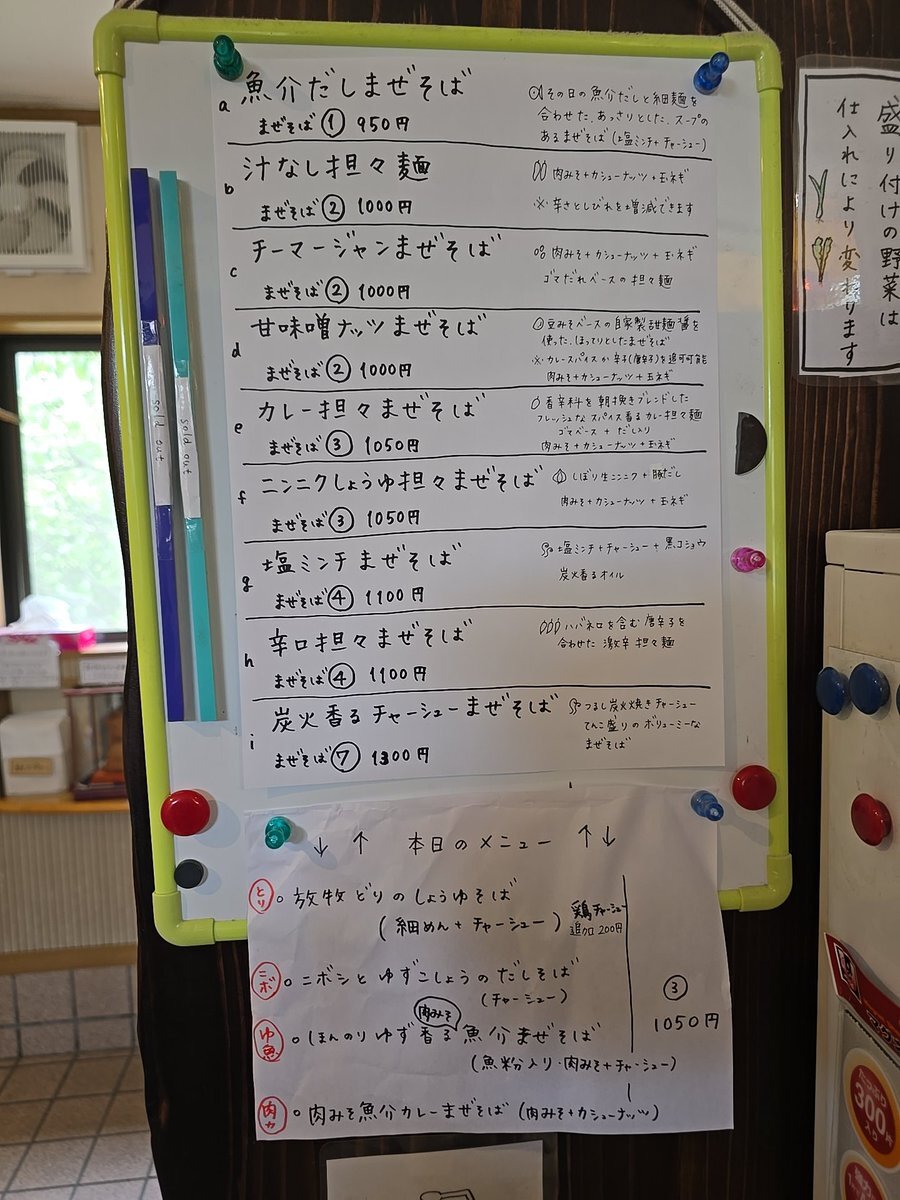 a 魚介だしまぜそば
まぜそば ① 950円
その日の魚介だしと細麺を
合わせた、あっさりとした、スープの
あるまぜそば (塩ミンチ+チャーシュー)
b 汁なし担々麺
まぜそば ② 1000円
肉みそ+カシューナッツ+玉ネギ
※ 辛さとしびれを増減できます
c チーマージャンまぜそば
まぜそば ② 1000円
肉みそ+カシューナッツ+玉ネギ
ゴマだれベースの担々麺
d 甘味噌ナッツまぜそば
まぜそば ② 1000円
豆みそベースの自家製甜麺醤を
使った、ほってりとしたまぜそば
※ カレースパイスか辛子(唐辛子)を追可可能
肉みそ+カシューナッツ+玉ネギ
e カレー担々まぜそば
まぜそば ③ 1050円
香辛料を朝挽きブレンドした
フレッシュなスパイス香るカレー担々麺
ゴマベース + だし入り
肉みそ+カシューナッツ+玉ネギ
f ニンニクしょうゆ担々まぜそば
まぜそば ③ 1050円
しぼり生ニンニク+豚だし
肉みそ+カシューナッツ+玉ネギ
g 塩ミンチまぜそば
まぜそば ④ 1100円
塩ミンチ+チャーシュー+黒コショウ
炭火香るオイル
h 辛口担々まぜそば
まぜそば ④ 1100円
ハバネロを含む唐辛子を
合わせた 激辛担々麺
i 炭火香るチャーシューまぜそば
まぜそば ⑦ 1300円
つるし炭火焼きチャーシュー
てんこ盛りのボリューミーな
まぜそば
sold out
sold out
↓ ↑ 本日のメニュー ↑↓
とり 。放牧どりのしょうゆそば
(細めん+チャーシュー)
鶏チャーシュー
追加200円
ニボ 。ニボシとゆずこしょうのだしそば
(チャーシュー)
③
1050円
肉みそ
ゆ魚 。ほんのりゆず香る魚介まぜそば
(魚粉入り・肉みそ+チャーシュー)
肉カ 。肉みそ魚介カレーまぜそば (肉みそ+カシューナッツ)
盛り付けの野菜は
仕入れにより変わります
たっぷり
300
入り